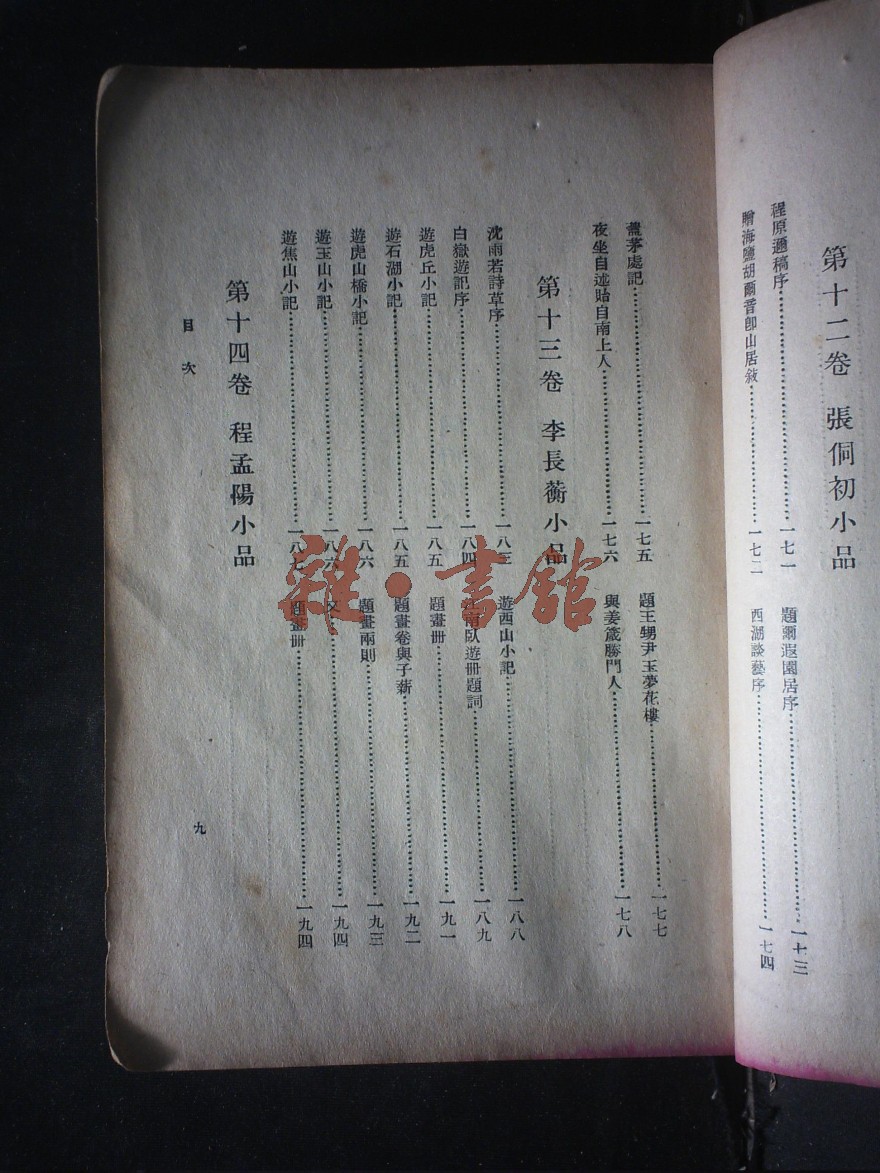 第十二卷 張侗初小品
程原邇稿序……一七一 題爾遐園居序……一七三
贈海鹽胡爾音卽山居敍……一七二 西湖談藝序……一七四
蓋茅處記……一七五 題王甥尹玉夢花樓……一七七
夜坐自述貽自南上人……一七六 與姜箴勝門人……一七八
第十三卷 李長蘅小品
沈雨若詩草序……一八三 遊西山小記……一八八
白嶽遊記序……一八四 江南臥遊冊題詞……一八九
遊虎丘小記……一八五 題畫冊……一九一
遊石湖小記……一八五 題畫卷與子薪……一九二
遊虎山橋小記……一八六 題畫兩則……一九三
遊玉山小記……一八六 又……一九四
遊焦山小記……一八七 題畫冊……一九四
第十四卷 程孟陽小品
目次
九
雜·書館